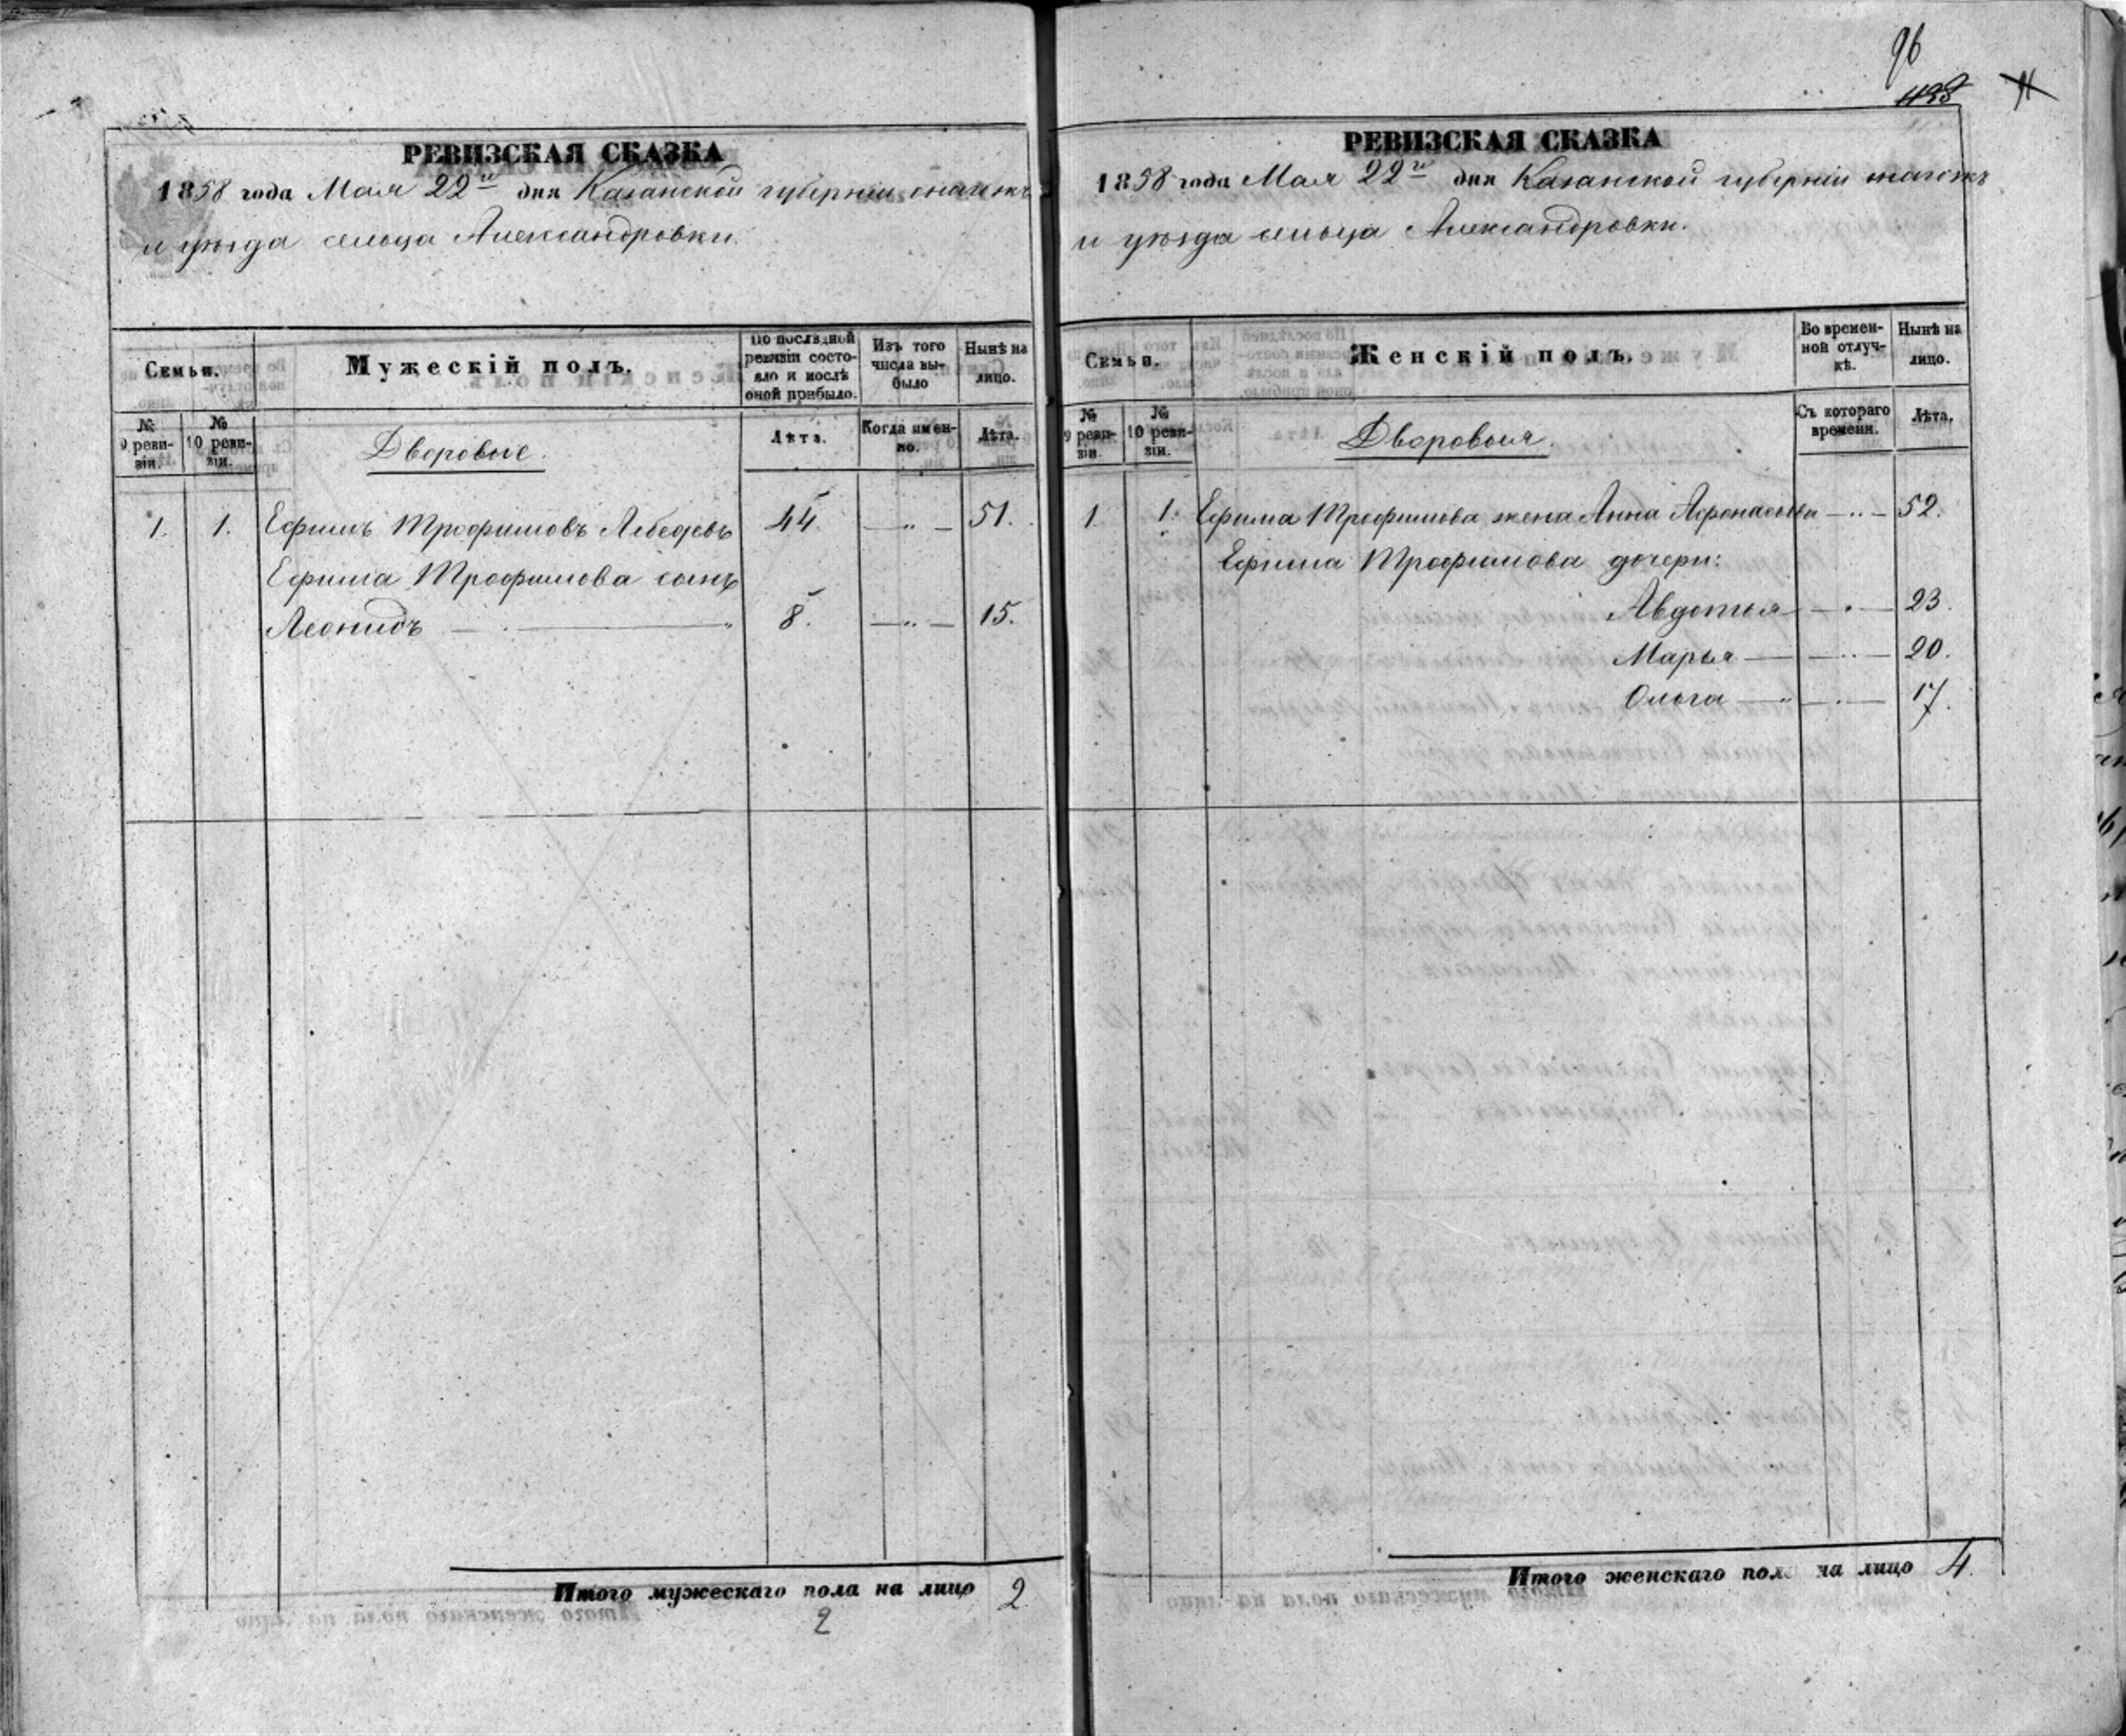 РЕВИЗСКАЯ СКАЗКА
1858 года Мая 22го дня Казанской губерніи
и уѣзда сельца Александровки.
Семьи.
Мужескій полъ.
По послѣдной ревизіи состояло и послѣ оной прибыло.
Изъ того числа выбыло
Нынѣ на лицо.
№ 9 ревизіи.
№ 10 ревизіи.
Дворовые.
Лѣта.
Когда именно.
Лѣта.
1. 1. Ефимъ Трофимовъ Лебедевъ 44. — „ — 51.
Ефима Трофимова сынъ
Леонидъ — „ 8. — „ — 15.
Итого мужескаго пола на лицо 2.
2
96
РЕВИЗСКАЯ СКАЗКА
1858 года Мая 22го дня Казанской губерніи
и уѣзда сельца Александровки.
Семьи.
Женскій полъ.
Во временной отлучкѣ.
Нынѣ на лицо.
№ 9 ревизіи.
№ 10 ревизіи.
Дворовыя.
Съ котораго времени.
Лѣта.
1 1. Ефима Трофимова жена Анна Афонасьева — „ — 52.
Ефима Трофимова дочери:
Авдотья — „ — 23.
Марья — „ — 20.
Ольга — „ — 17.
Итого женскаго пола на лицо 4.